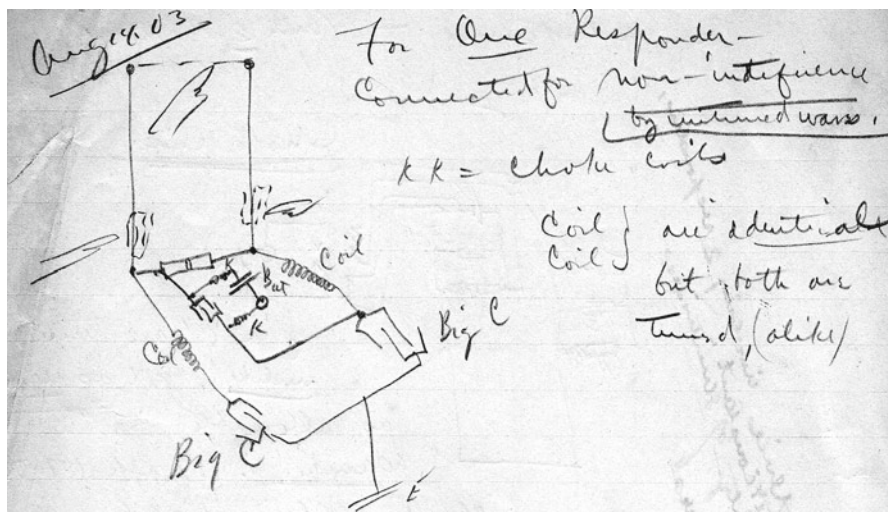 Aug 14. 03
For One Responder—
Connected for non-indifference
by untuned waves.
K K = Choke coils
Coil } are identical
Coil
but both are
tuned, (alike)
Coil
K
Bat
K
Coil
Big C
Big C
E